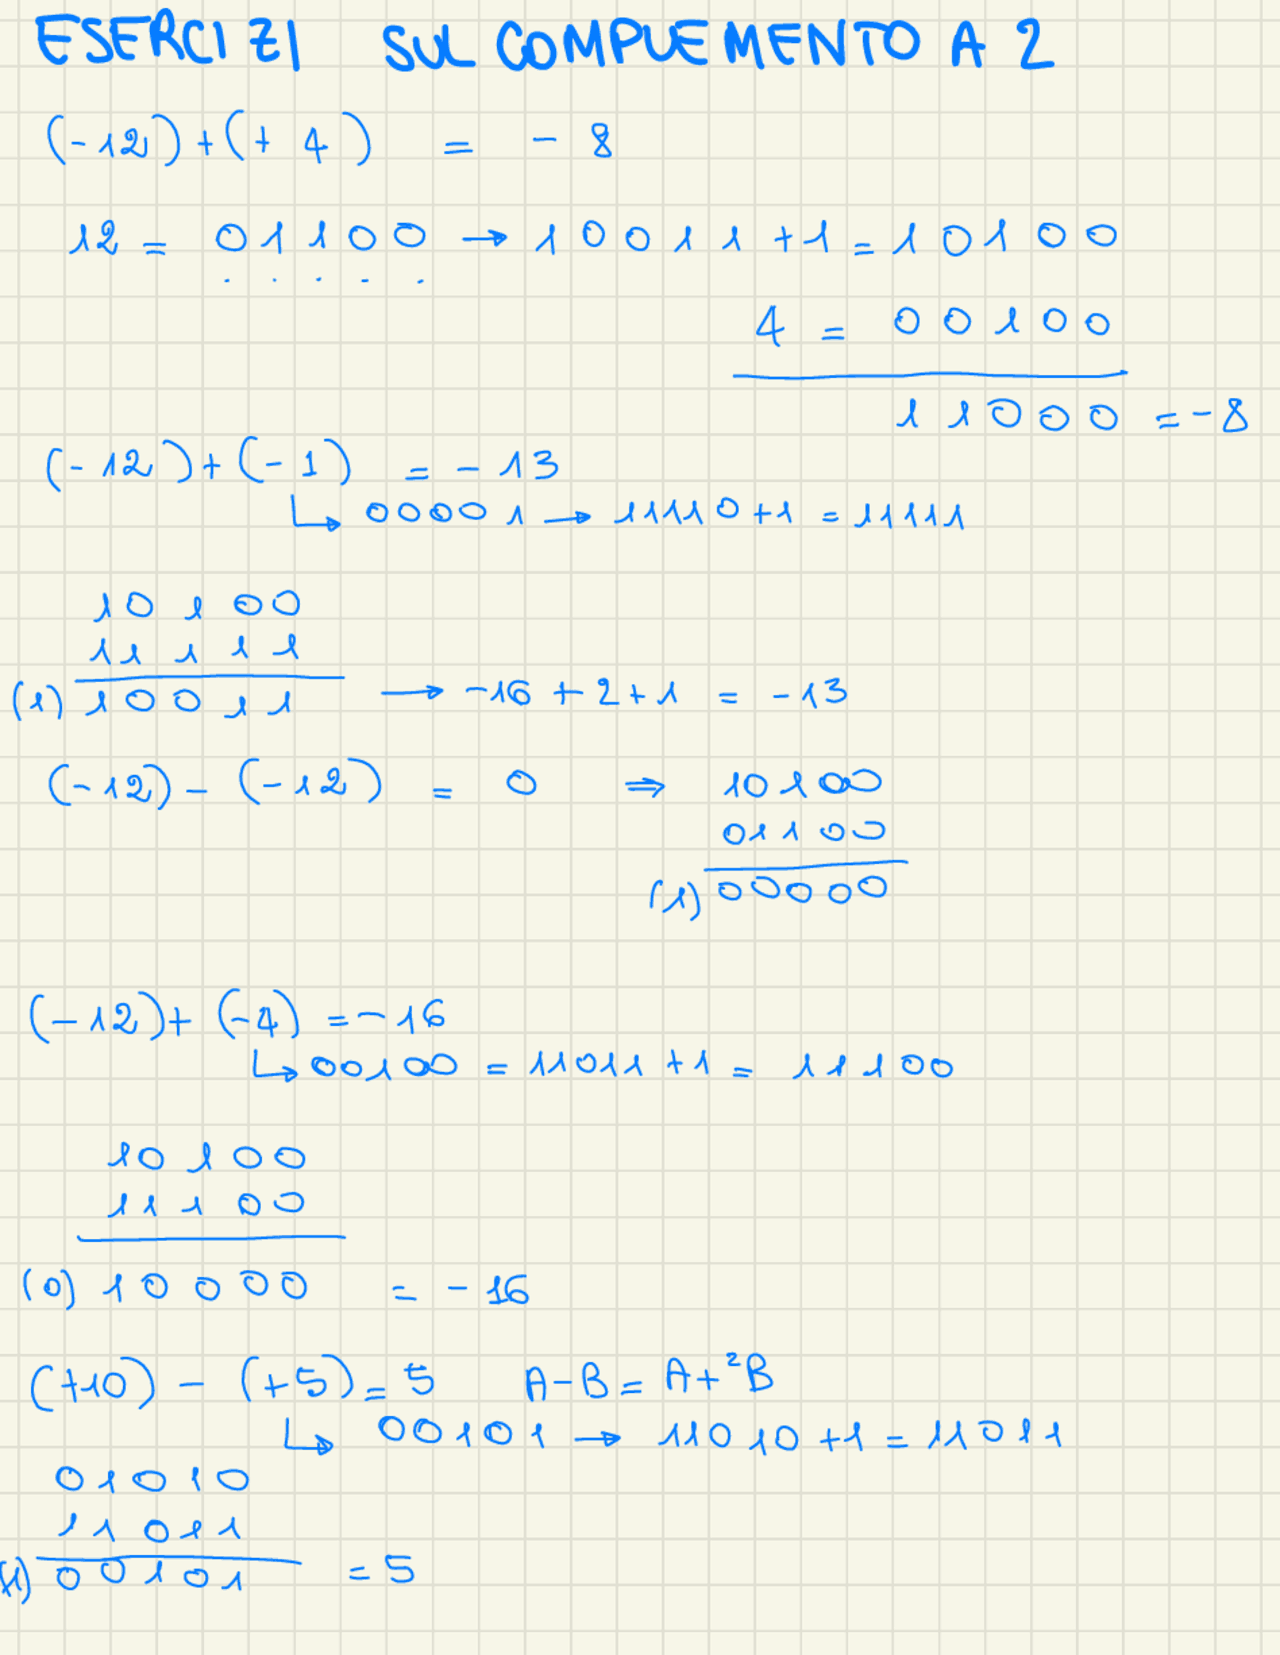 ESERCIZI SUL COMPLEMENTO A 2
(-12)+(+ 4) = - 8
12 = 01100 → 10011 +1 = 10100
4 = 00100
11000 = -8
(-12)+(-1) = - 13
↳ 00001 → 11110+1 = 11111
10100
11111
(1) 10011 → -16 + 2 + 1 = - 13
(-12) - (-12) = 0 ⇒ 10100
01100
(1) 00000
(-12)+ (-4) = -16
↳ 00100 = 11011 +1 = 11100
10100
11100
(0) 10000 = - 16
(+10) - (+5) = 5 A-B = A+²B
↳ 00101 → 11010 +1 = 11011
01010
11011
(1) 00101 = 5